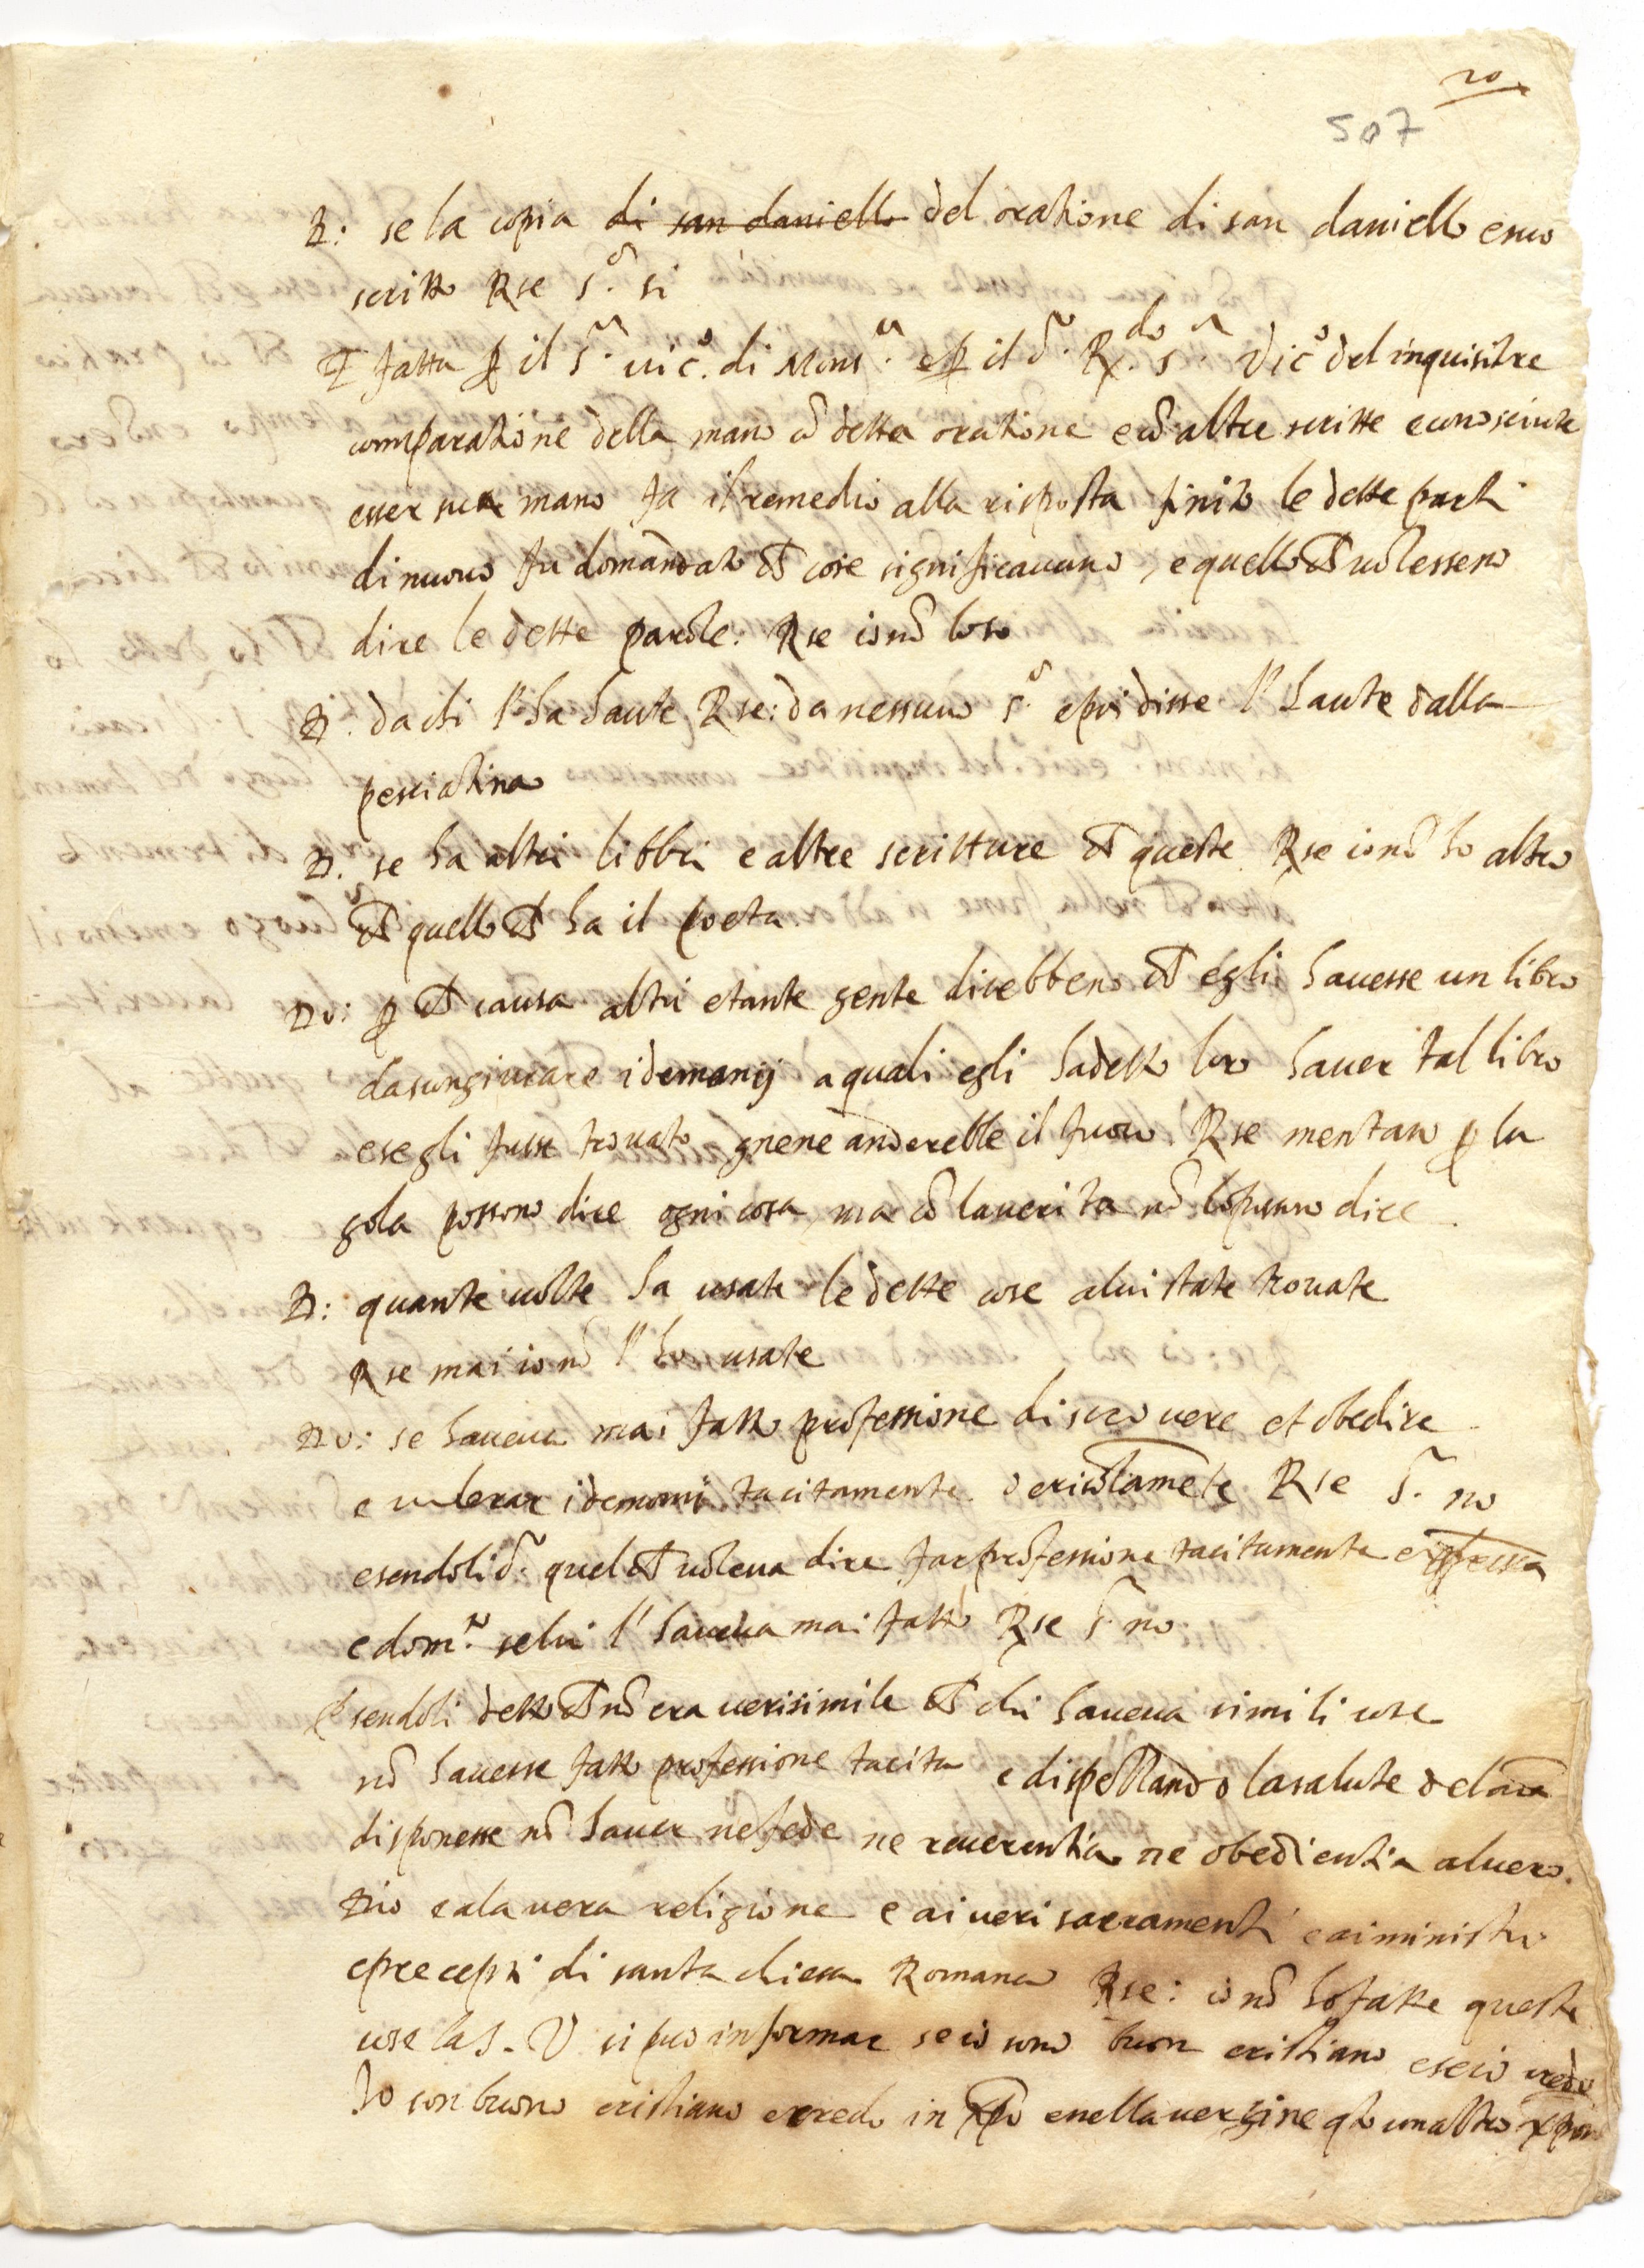 20
507
D: se la copia di san daniello del oratione di san daniello e suo
scritto Rse S.r si
E fatta p il S.r vic.o di Mons.r e p il d.o R.do S.r Vic.o del inquisitre
comparatione della mano cō detta oratione e cō altre scritte e conosciute
esser sua mano fa il remedio alla risposta finito le dette parti
di nuovo fu domandato ch cose significavano, e quello ch volesseno
dire le dette parole: Rse io nō lo so
D. da chi l'ha haute Rse: da nessuno S.r e poi disse l'haute dalla
pesciatina
D. se ha altri libbri e altre scritture ch queste Rse io nō ho altro
ch quello ch ha il poeta
Do: p ch causa altri e tante gente direbbeno ch egli havesse un libro
da scongiurare i demonij a quali egli ha detto loro haver tal libro
e se gli fusse trovato gnene anderebbe il fuoco. Rse mentano p la
gola possono dire ogni cosa, ma cō la verita nō lo possano dire
D: quante volte ha usate le dette cose a lui state trovate
Rse mai io nō l'ho usate
Do: se haveva mai fatto professione di scrovere et obedire
e i demonij tacitamente o Rse S.r no
esendoli d.o quel ch voleva dire far professione tacitamente e espressa
e dom.to se lui l'haveva mai fatto Rse S.r no
Esendoli detto ch nō era verisimile ch chi haveva simili cose
nō havesse fatto professione tacita e dispettando la salute del aīa
disponesse nō haver ne fede ne reverentia ne obedientia al vero
Dio e ala vera religione e ai veri sacramenti e ai ministri
e precepti di santa chiesa Romana Rse: io nō ho fatte queste
cose la S. V si puo informar se io sono buon cristiano e se io credo
Io son buono cristiano e credo in xpo e nella vergine qto un altro xpiano